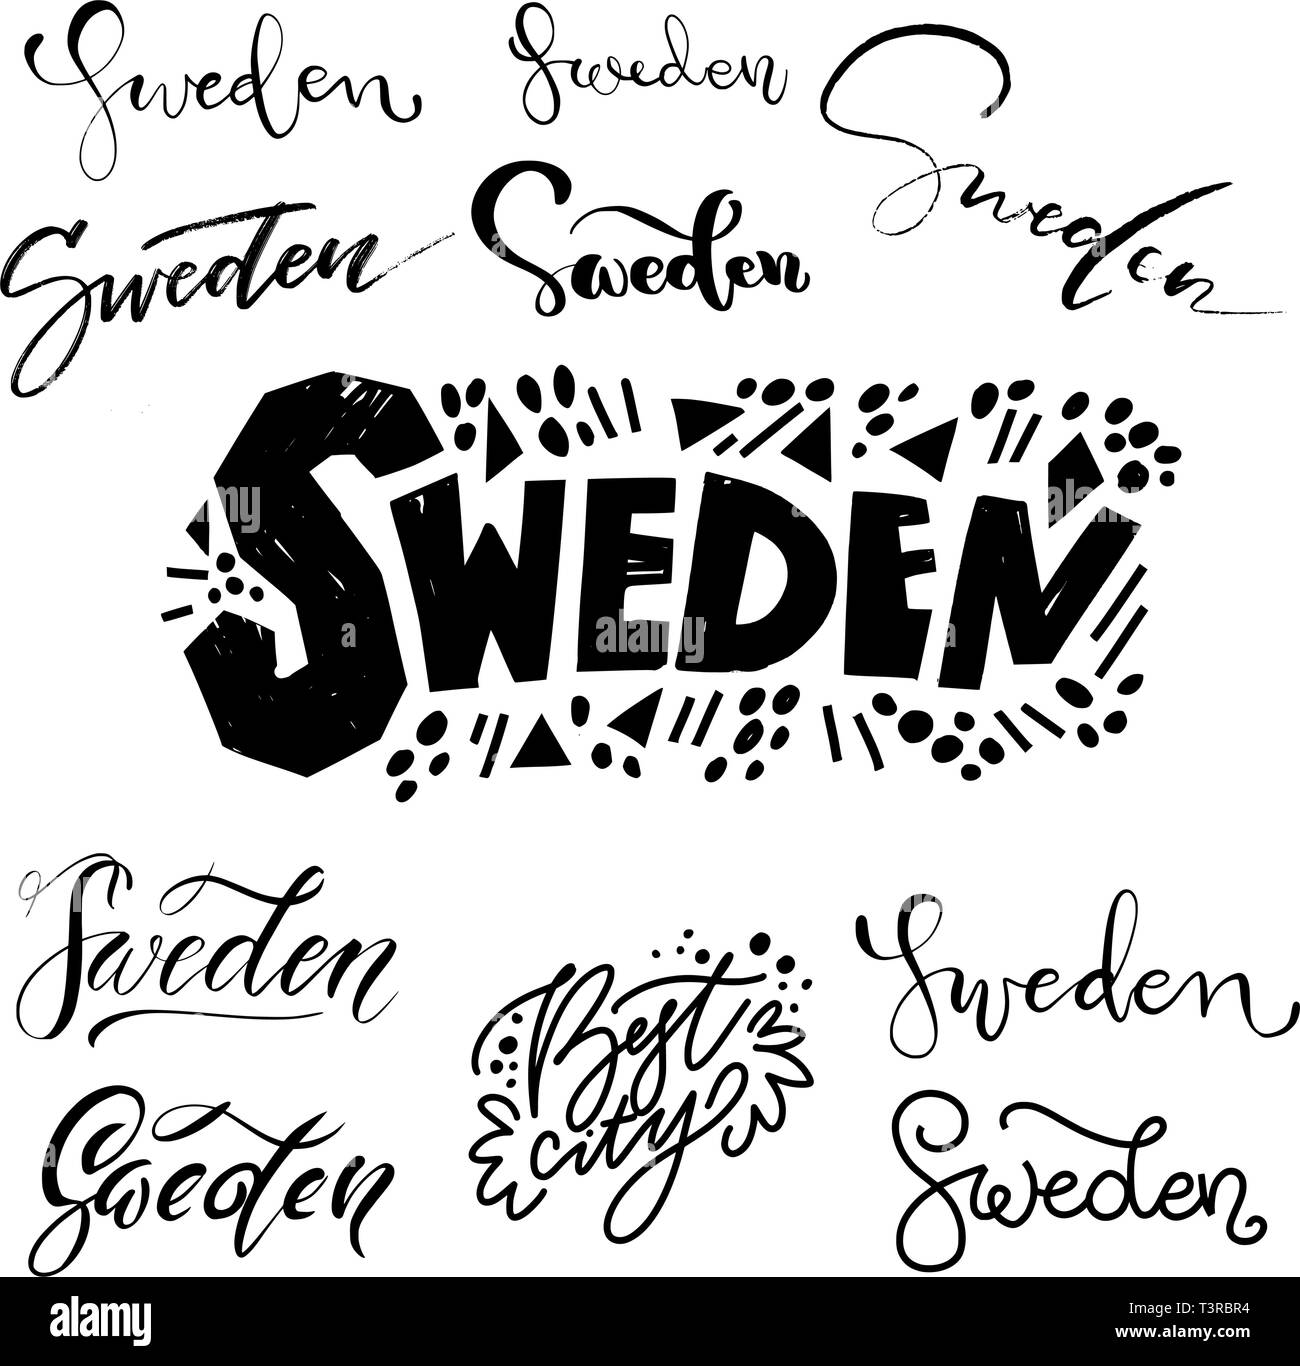 Sweden
Sweden
Sweden
Sweden
Sweden
SWEDEN
Sweden
Best
city
Sweden
Sweden
Sweden
alamy
Image ID: T3RBR4
www.alamy.com